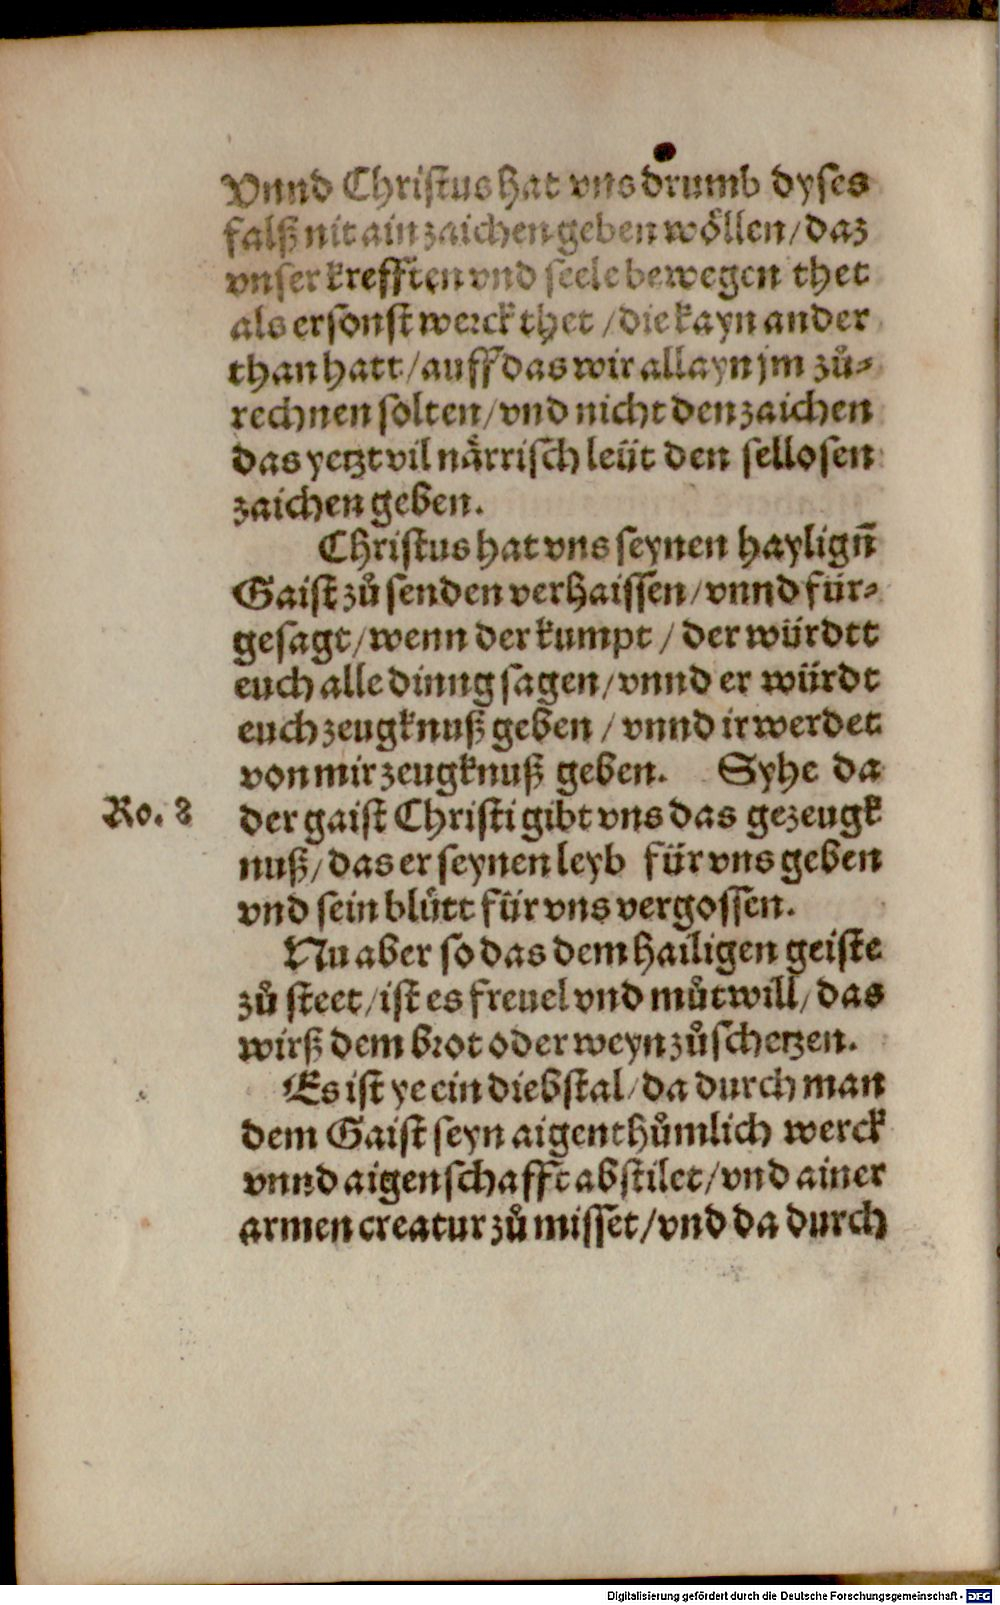 Vnnd Christus hat vns drumb dyses
falß nit ain zaichen geben wöllen/ daz
vnser krefften vnd seele bewegen thet
als er sonst werck thet / die kayn ander
than hatt/ auff das wir allayn jm zů⸗
rechnen solten/ vnd nicht den zaichen
das yetzt vil närrisch leüt den sellosen
zaichen geben.
Christus hat vns seynen hayligñ
Gaist zů senden verhaissen/ vnnd für⸗
gesagt/ wenn der kumpt / der würdtt
euch alle dinng sagen/ vnnd er würdt
euch zeugknuß geben / vnnd ir werdet
von mir zeugknuß geben. Syhe da
Ro. 8 der gaist Christi gibt vns das gezeugk
nuß/ das er seynen leyb für vns geben
vnd sein blůtt für vns vergossen.
Nu aber so das dem hailigen geiste
zů steet/ ist es freuel vnd můtwill/ das
wirß dem brot oder weyn zůschetzen.
Es ist ye ein diebstal/ da durch man
dem Gaist seyn aigenthůmlich werck
vnnd aigenschafft abstilet/ vnd ainer
armen creatur zů misset/ vnd da durch
Digitalisierung gefördert durch die Deutsche Forschungsgemeinschaft - DFG